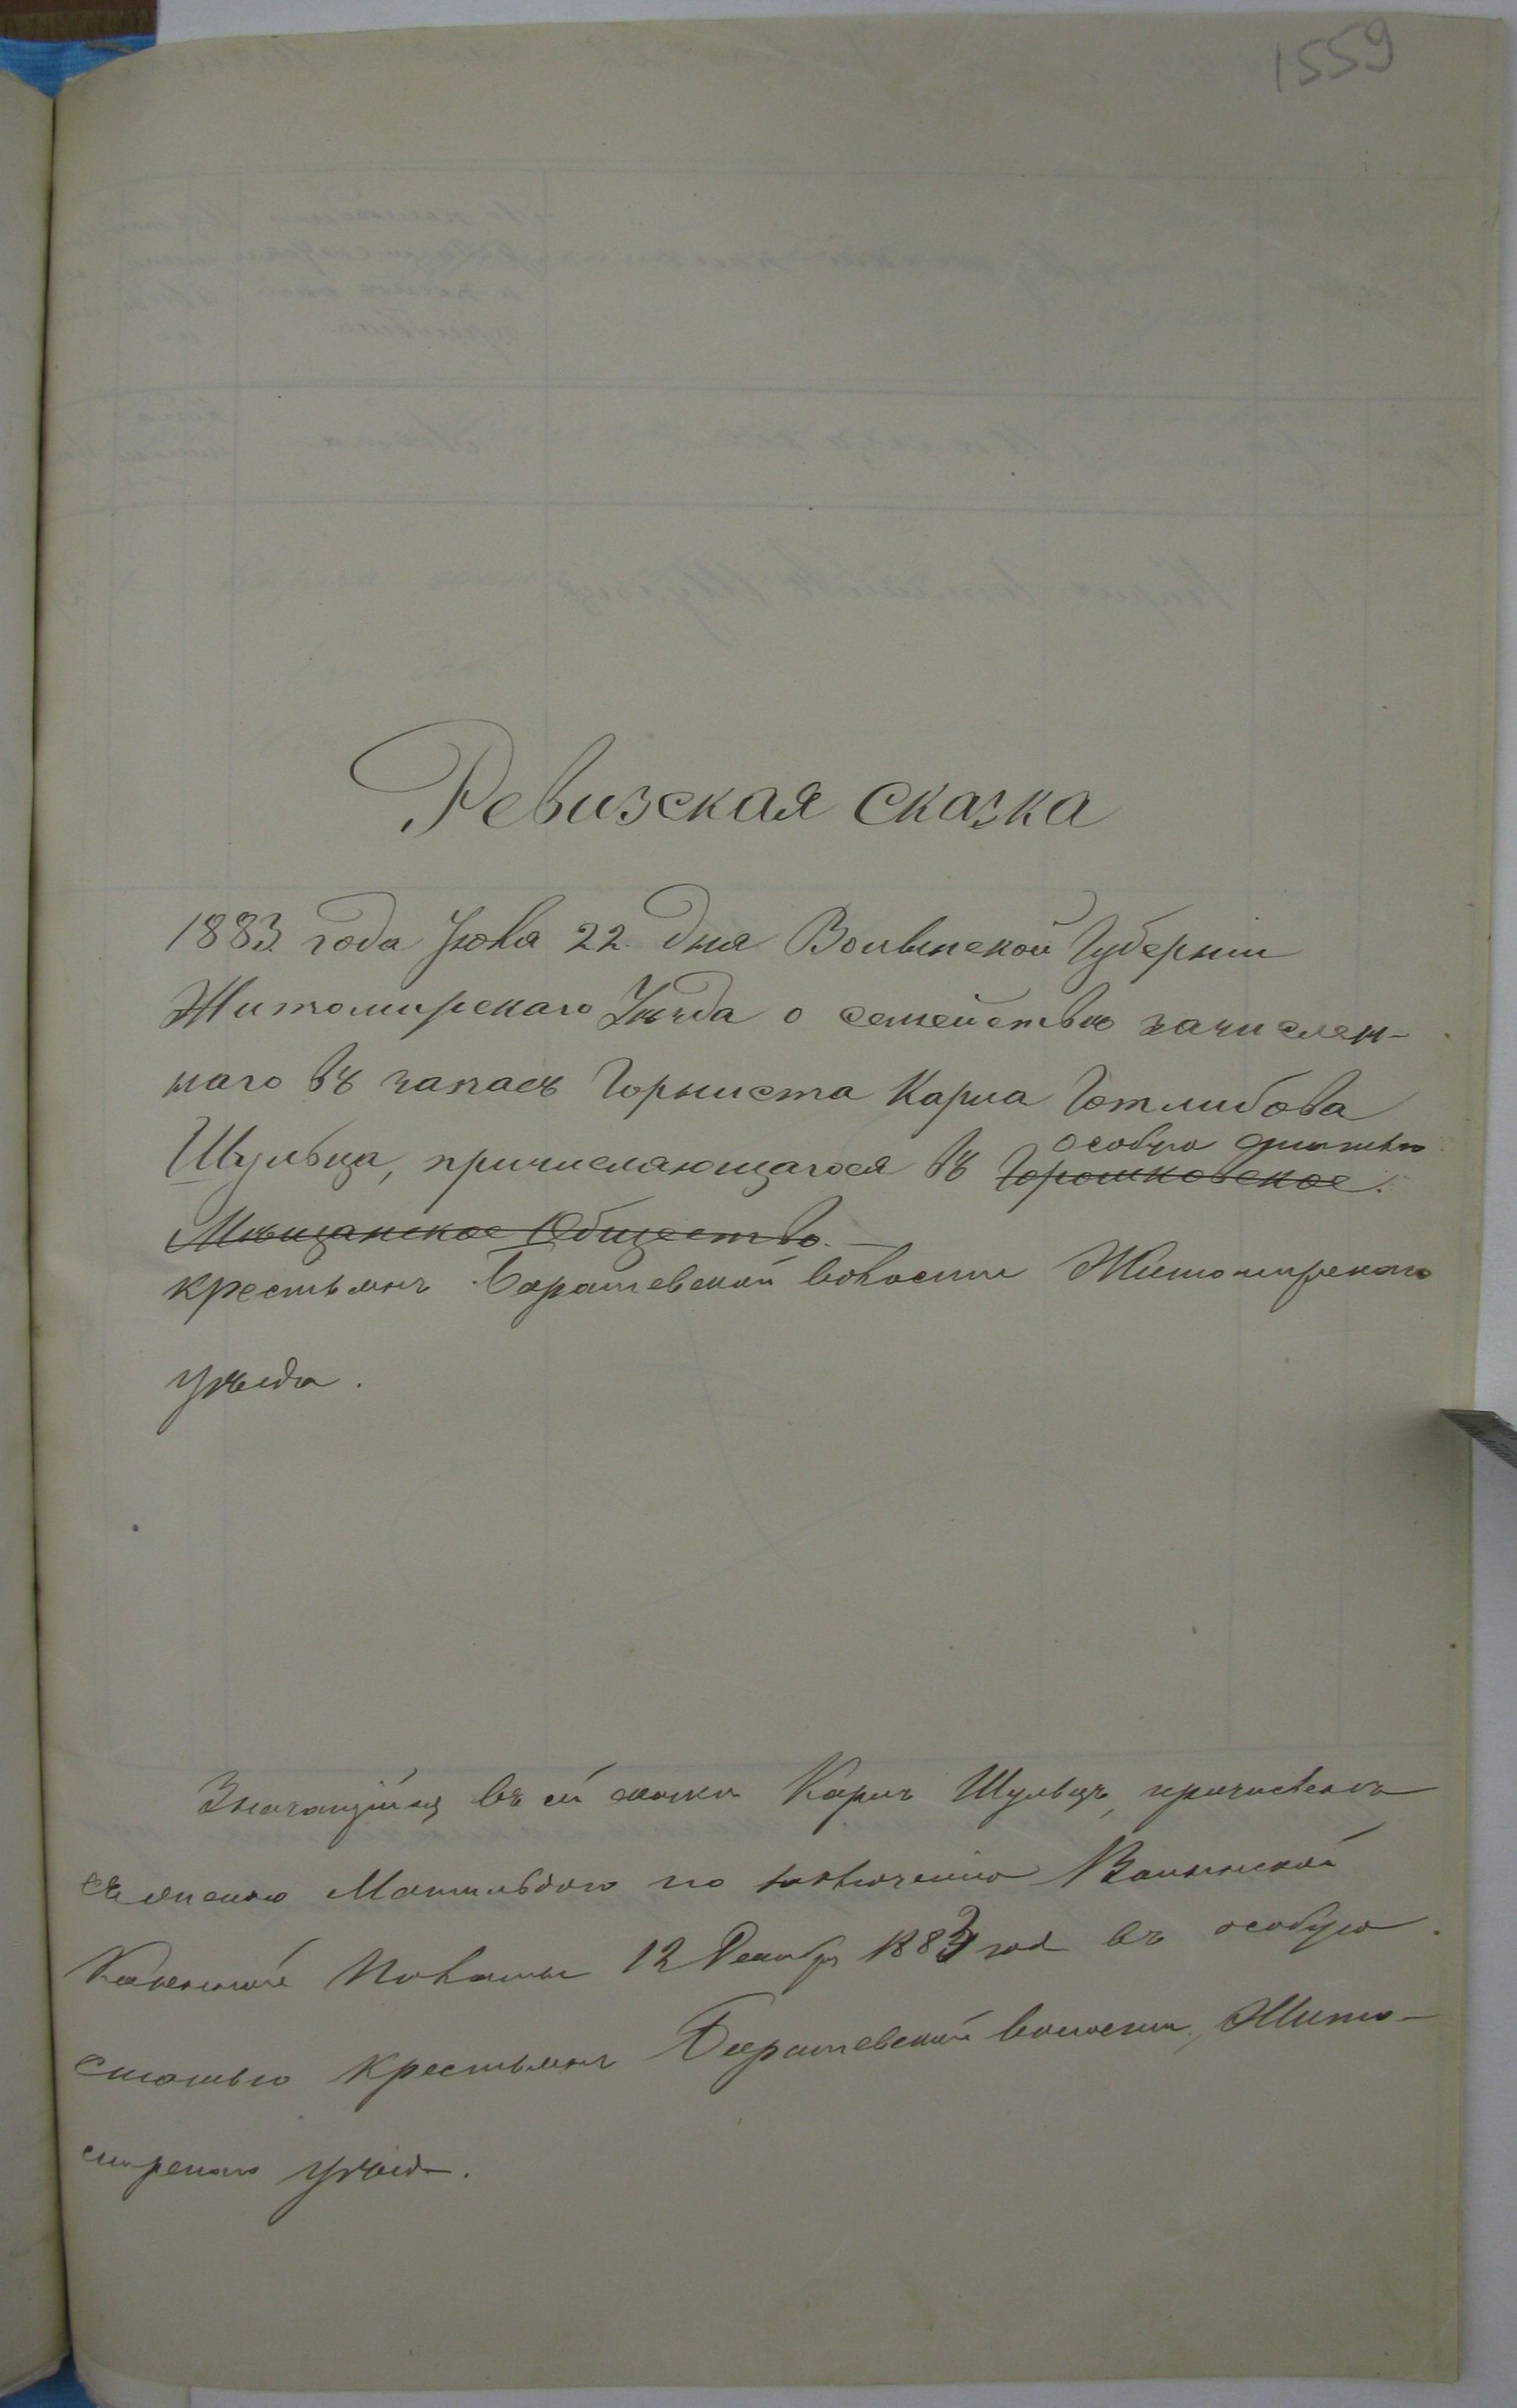 1559
Ревизская сказка
1883 года Июля 22 дня Волынской Губерніи
Житомирскаго Уѣзда о семействѣ зачислен-
наго въ запасъ Горниста Карла Готлибова
Шульца, причисляющагося въ Горошковское
особую статью
Мѣщанское Общество.
крестьянъ Барашевской волости Житомирскаго
уѣзда.
Значащійся въ сей сказкѣ Карлъ Шульцъ, причисленъ
съ женою Матильдою по заключенію Волынской
Казенной Палаты 12 Декабря 1883 года въ особую
статью крестьянъ Барашевской волости, Жито-
мирскаго уѣзда.